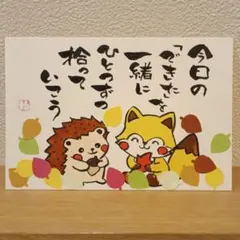 今日の
「できた」を
一緒に
ひとつずつ
拾って
いこう